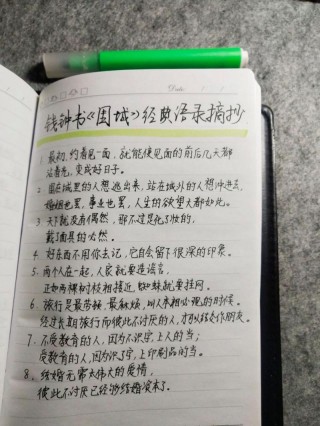 Date:
钱钟书《围城》经典语录摘抄
1. 最初,约着见一面,就能使见面的前后几天都
沾着光,变成好日子。
2. 围在城里的人想逃出来,站在城外的人想冲进去,
婚姻也罢,事业也罢,人生的欲望大都如此。
3. 天下就没有偶然,那不过是化了妆的,
戴了面具的必然。
4. 好东西不用你去记,它自会留下很深的印象。
5. 两个人在一起,人家就要造谣言,
正如两根树枝相接近,蜘蛛就要挂网。
6. 旅行是最劳顿,最麻烦,叫人本相必现的时候。
经过长期旅行而彼此不讨厌的人,才可以结交作朋友。
7. 不受教育的人,因为不识字,上人的当;
受教育的人,因为识了字,上印刷品的当。
8. 结婚无需太伟大的爱情,
彼此不讨厌已经够结婚资本了。